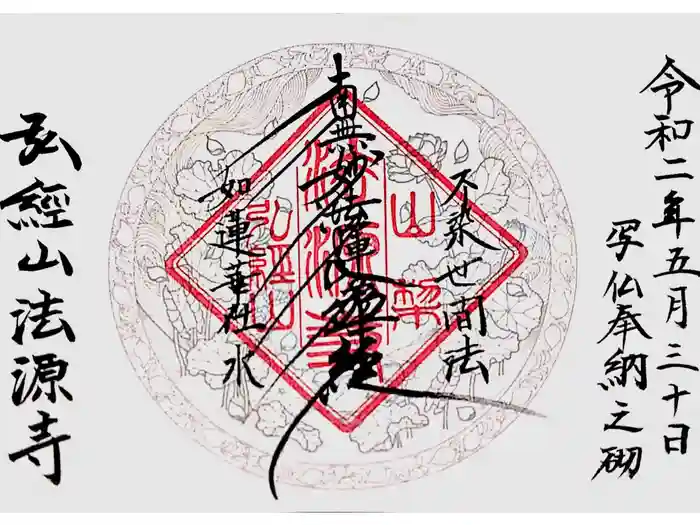 令和二年五月三十日
写仏奉納之砌
不染世間法
南無妙法蓮華経
如蓮華在水
弘經山法源寺